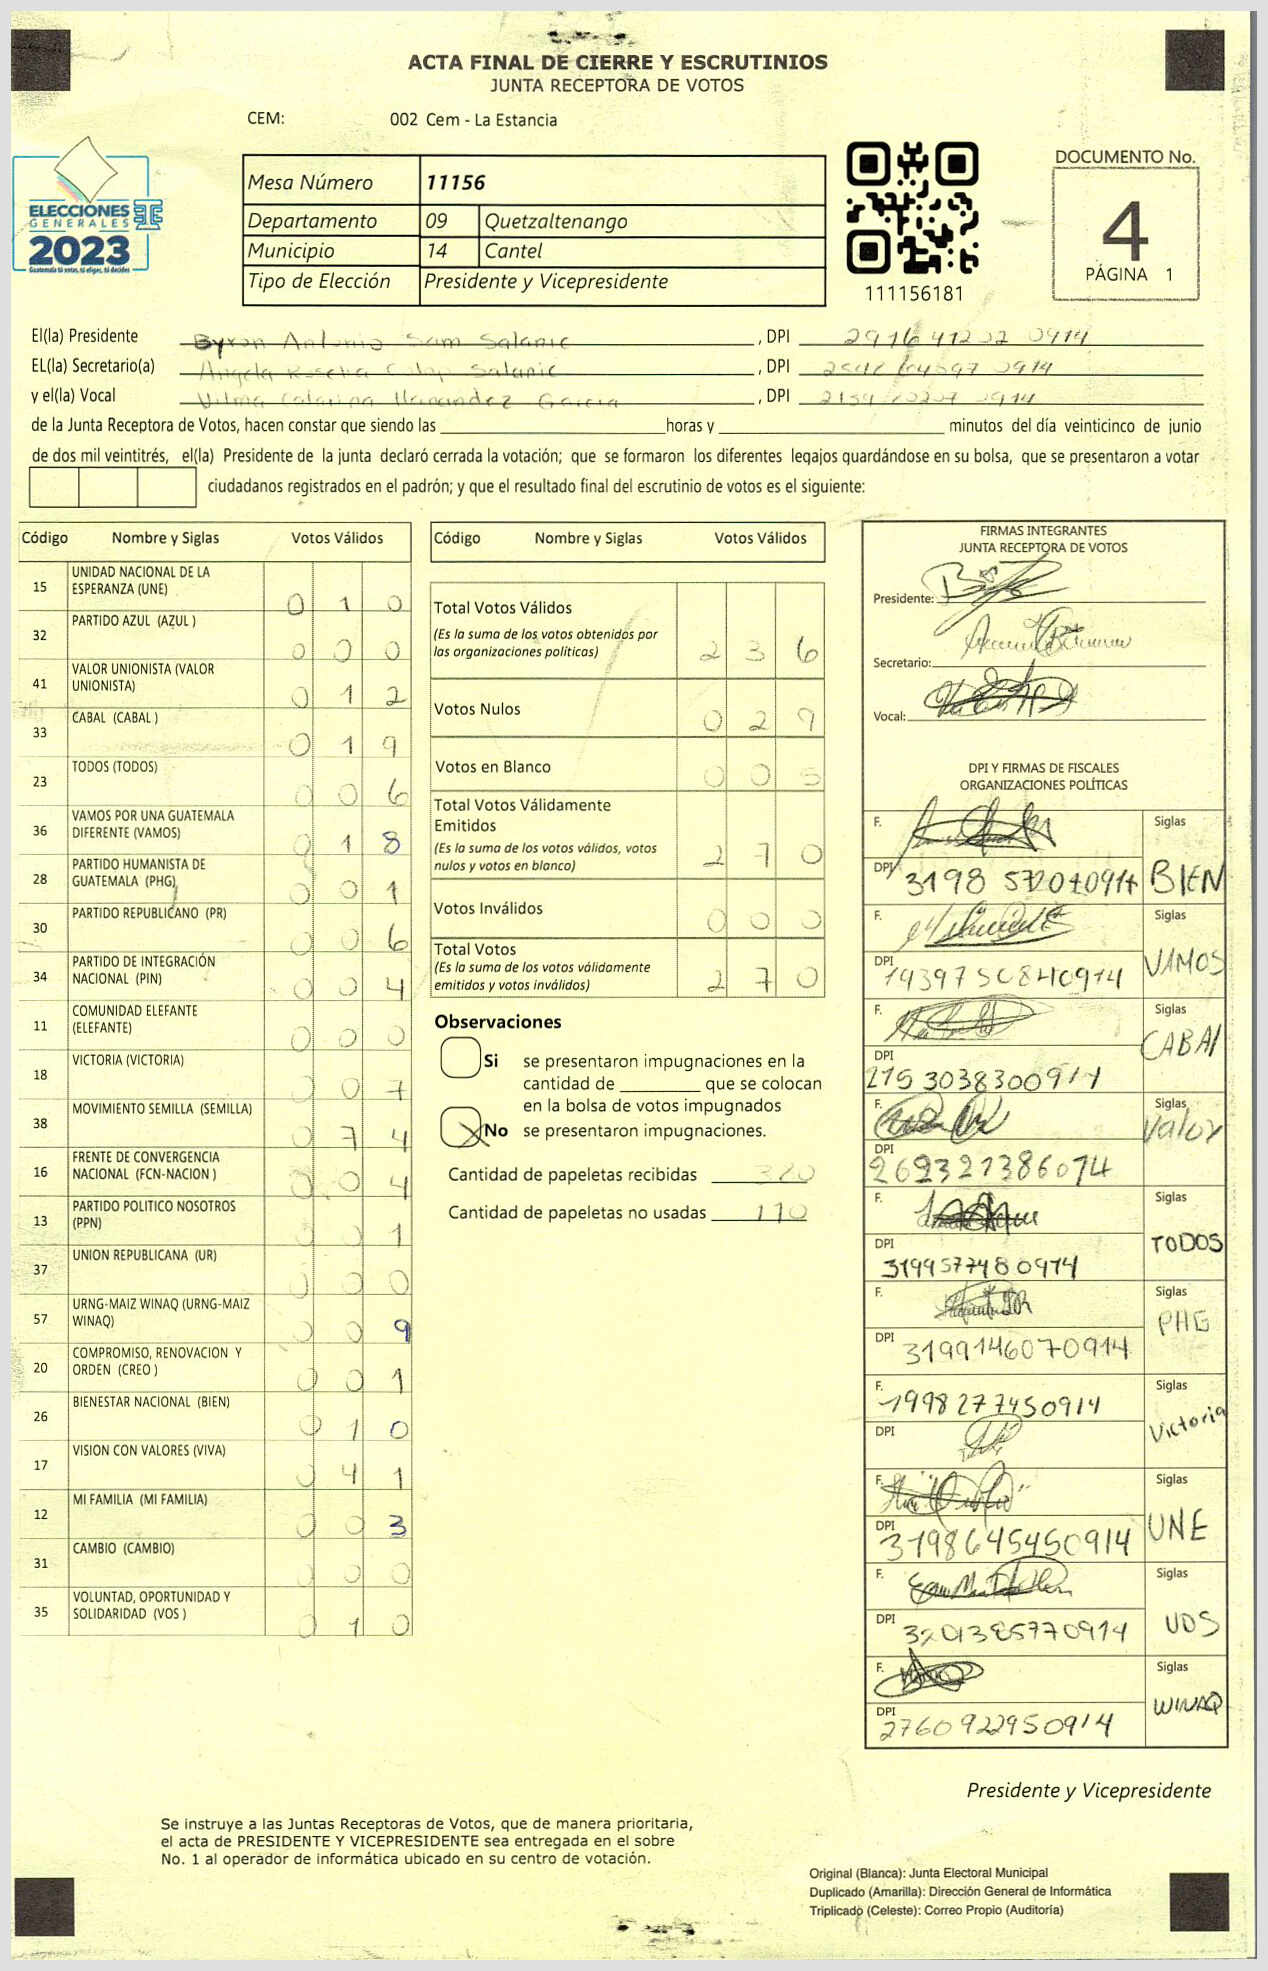 ACTA FINAL DE CIERRE Y ESCRUTINIOS
JUNTA RECEPTORA DE VOTOS
CEM: 002 Cem - La Estancia
ELECCIONES
GENERALES
2023
Guatemala tú votas, tú eliges, tú decides
Mesa Número 11156
Departamento 09 Quetzaltenango
Municipio 14 Cantel
Tipo de Elección Presidente y Vicepresidente
111156181
DOCUMENTO No.
4
PÁGINA 1
El(la) Presidente Byron Antonio Sam Salanic , DPI 2916 41202 0914
EL(la) Secretario(a) Angela Salanic , DPI 0914
y el(la) Vocal Vilma Catarina Hernandez Garcia , DPI 0914
de la Junta Receptora de Votos, hacen constar que siendo las horas y minutos del día veinticinco de junio
de dos mil veintitrés, el(la) Presidente de la junta declaró cerrada la votación; que se formaron los diferentes legajos guardándose en su bolsa, que se presentaron a votar
ciudadanos registrados en el padrón; y que el resultado final del escrutinio de votos es el siguiente:
Código Nombre y Siglas Votos Válidos
15 UNIDAD NACIONAL DE LA ESPERANZA (UNE) 0 1 0
32 PARTIDO AZUL (AZUL ) 0 0 0
41 VALOR UNIONISTA (VALOR UNIONISTA) 0 1 2
33 CABAL (CABAL ) 0 1 9
23 TODOS (TODOS) 0 0 6
36 VAMOS POR UNA GUATEMALA DIFERENTE (VAMOS) 0 1 8
28 PARTIDO HUMANISTA DE GUATEMALA (PHG) 0 0 1
30 PARTIDO REPUBLICANO (PR) 0 0 6
34 PARTIDO DE INTEGRACIÓN NACIONAL (PIN) 0 0 4
11 COMUNIDAD ELEFANTE (ELEFANTE) 0 0 0
18 VICTORIA (VICTORIA) 0 0 7
38 MOVIMIENTO SEMILLA (SEMILLA) 0 7 4
16 FRENTE DE CONVERGENCIA NACIONAL (FCN-NACION ) 0 0 4
13 PARTIDO POLITICO NOSOTROS (PPN) 0 0 1
37 UNION REPUBLICANA (UR) 0 0 0
57 URNG-MAIZ WINAQ (URNG-MAIZ WINAQ) 0 0 9
20 COMPROMISO, RENOVACION Y ORDEN (CREO ) 0 0 1
26 BIENESTAR NACIONAL (BIEN) 0 1 0
17 VISION CON VALORES (VIVA) 0 4 1
12 MI FAMILIA (MI FAMILIA) 0 0 3
31 CAMBIO (CAMBIO) 0 0 0
35 VOLUNTAD, OPORTUNIDAD Y SOLIDARIDAD (VOS ) 0 1 0
Código Nombre y Siglas Votos Válidos
Total Votos Válidos
(Es la suma de los votos obtenidos por
las organizaciones políticas) 2 3 6
Votos Nulos 0 2 9
Votos en Blanco 0 0 5
Total Votos Válidamente
Emitidos
(Es la suma de los votos válidos, votos
nulos y votos en blanco) 2 7 0
Votos Inválidos 0 0 0
Total Votos
(Es la suma de los votos válidamente
emitidos y votos inválidos) 2 7 0
Observaciones
Si se presentaron impugnaciones en la
cantidad de que se colocan
en la bolsa de votos impugnados
No se presentaron impugnaciones.
Cantidad de papeletas recibidas 320
Cantidad de papeletas no usadas 110
FIRMAS INTEGRANTES
JUNTA RECEPTORA DE VOTOS
Presidente:
Secretario:
Vocal:
DPI Y FIRMAS DE FISCALES
ORGANIZACIONES POLÍTICAS
F. Siglas
DPI BIEN
F. Siglas
DPI 1939750840914 VAMOS
F. Siglas
DPI 2153038300914 CABAl
F. Siglas
DPI 262321386074 Valor
F. Siglas
DPI 3199577480914 TODOS
F. Siglas
DPI 3199146070914 PHG
F. 1998277450914 Siglas
DPI Victoria
F. Siglas
DPI 3198645450914 UNE
F. Siglas
DPI 3201385770914 VOS
F. Siglas
DPI 2760922950914 WINAQ
Presidente y Vicepresidente
Se instruye a las Juntas Receptoras de Votos, que de manera prioritaria,
el acta de PRESIDENTE Y VICEPRESIDENTE sea entregada en el sobre
No. 1 al operador de informática ubicado en su centro de votación.
Original (Blanca): Junta Electoral Municipal
Duplicado (Amarilla): Dirección General de Informática
Triplicado (Celeste): Correo Propio (Auditoría)